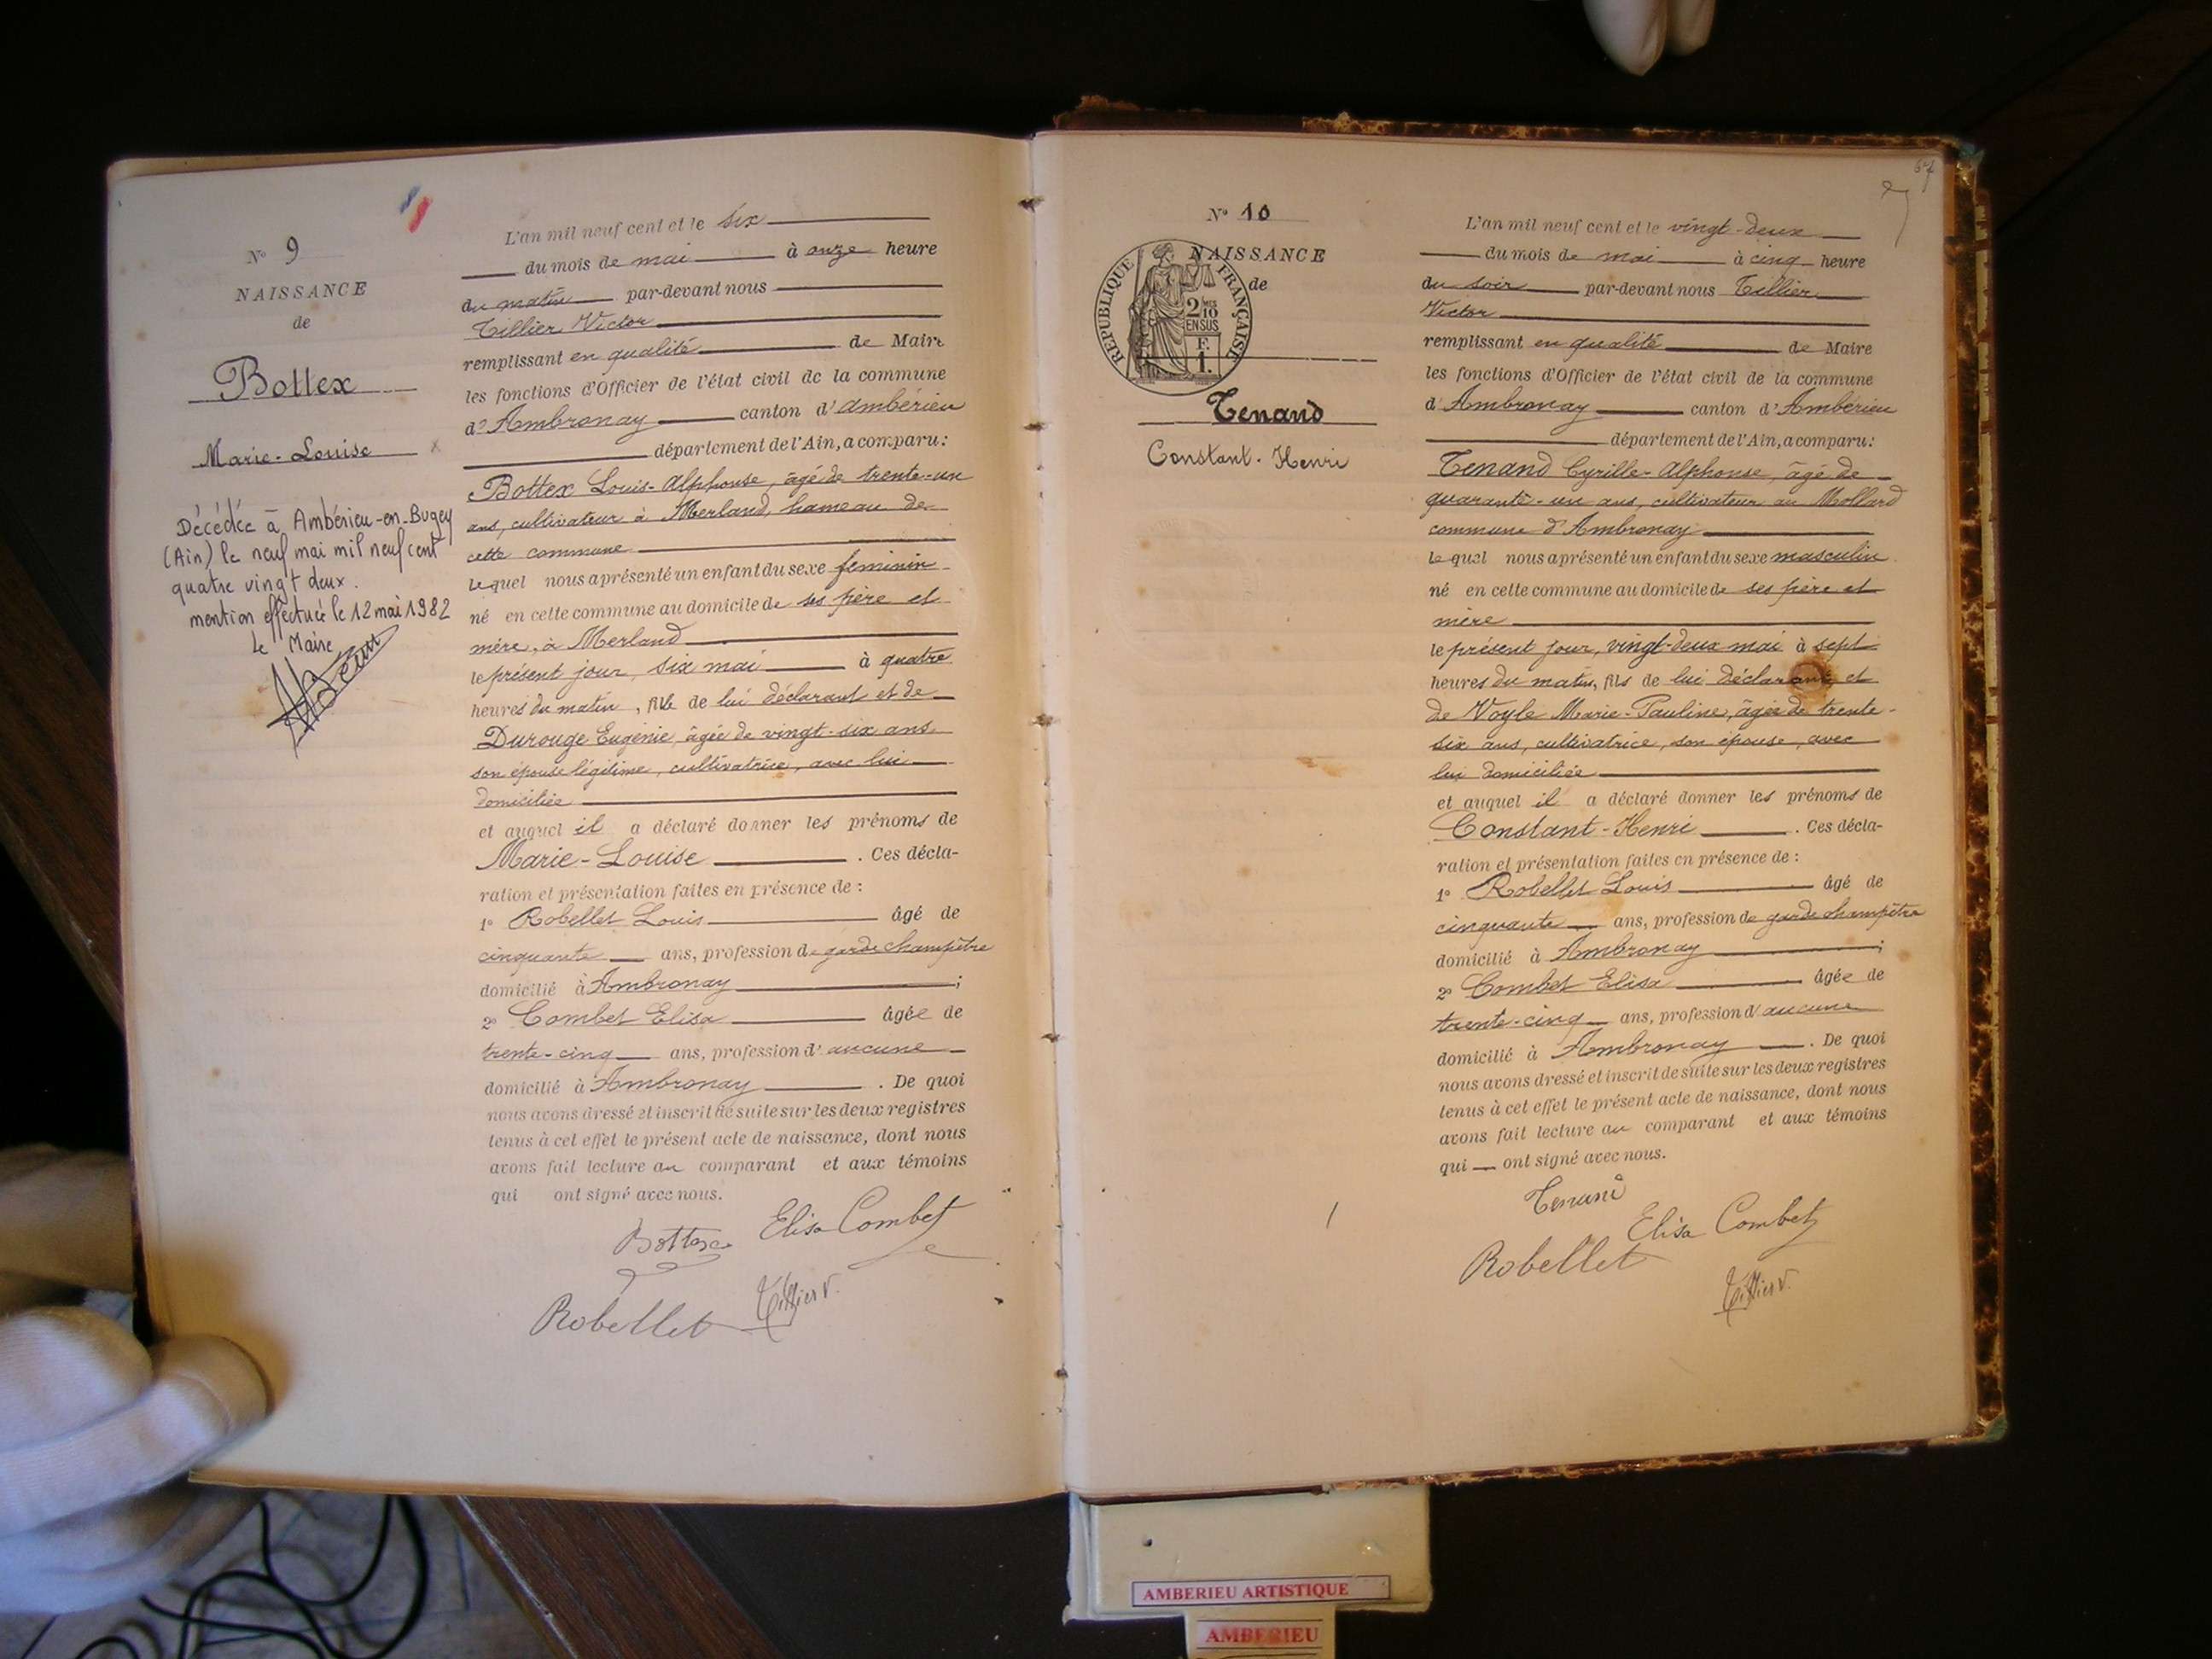 N° 9
NAISSANCE
de
Bottex
Marie-Louise
Décédée à Ambérieu-en-Bugey
(Ain) le neuf mai mil neuf cent
quatre vingt deux.
mention effectuée le 12 mai 1982
Le Maire
L'an mil neuf cent et le six
du mois de mai à onze heure
du matin par-devant nous
Tillier Victor
remplissant en qualité de Maire
les fonctions d'Officier de l'état civil de la commune
d'Ambronay canton d'Ambérieu
département de l'Ain, a comparu:
Bottex Louis-Alphonse, âgé de trente-un
ans, cultivateur à Merland, hameau de
cette commune
lequel nous a présenté un enfant du sexe féminin
né en cette commune au domicile de ses père et
mère, à Merland
le présent jour, six mai à quatre
heures du matin, fille de lui déclarant et de
Durouge Eugénie, âgée de vingt-six ans,
son épouse légitime, cultivatrice, avec lui
domiciliée
et auquel il a déclaré donner les prénoms de
Marie-Louise. Ces décla-
ration et présentation faites en présence de:
1° Robellet Louis âgé de
cinquante ans, profession de garde champêtre
domicilié à Ambronay;
2° Combet Elisa âgée de
trente-cinq ans, profession d'aucune
domicilié à Ambronay. De quoi
nous avons dressé et inscrit de suite sur les deux registres
tenus à cet effet le présent acte de naissance, dont nous
avons fait lecture au comparant et aux témoins
qui ont signé avec nous.
Bottex Elisa Combet
Robellet Tillier V.
67
N° 10
NAISSANCE
de
RÉPUBLIQUE FRANÇAISE
2/10 EN SUS
F.
1.
Tenand
Constant-Henri
L'an mil neuf cent et le vingt-deux
du mois de mai à cinq heure
du soir par-devant nous Tillier
Victor
remplissant en qualité de Maire
les fonctions d'Officier de l'état civil de la commune
d'Ambronay canton d'Ambérieu
département de l'Ain, a comparu:
Tenand Cyrille-Alphonse, âgé de
quarante-un ans, cultivateur au Mollard
commune d'Ambronay
lequel nous a présenté un enfant du sexe masculin
né en cette commune au domicile de ses père et
mère
le présent jour, vingt-deux mai à sept
heures du matin, fils de lui déclarant et
de Voyle Marie-Pauline, âgée de trente-
six ans, cultivatrice, son épouse, avec
lui domiciliée
et auquel il a déclaré donner les prénoms de
Constant-Henri. Ces décla-
ration et présentation faites en présence de:
1° Robellet Louis âgé de
cinquante ans, profession de garde champêtre
domicilié à Ambronay;
2° Combet Elisa âgée de
trente-cinq ans, profession d'aucune
domicilié à Ambronay. De quoi
nous avons dressé et inscrit de suite sur les deux registres
tenus à cet effet le présent acte de naissance, dont nous
avons fait lecture au comparant et aux témoins
qui ont signé avec nous.
Tenand
Elisa Combet
Robellet
Tillier V.
AMBERIEU ARTISTIQUE
AMBERIEU